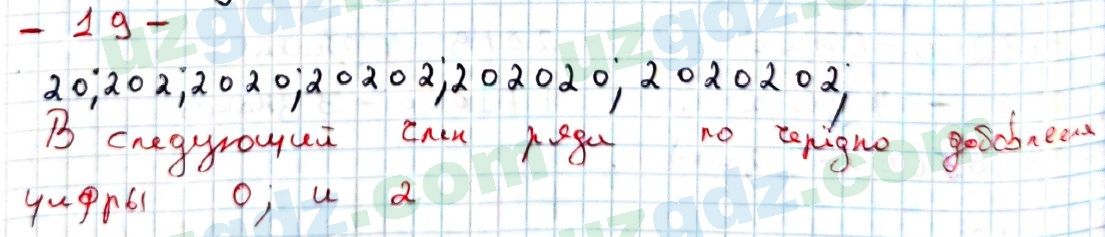 - 19 -
20; 202; 2020; 20202; 202020; 2020202;
В следующий член ряда по черідно добовляем
цифры 0; и 2
uzgdz.com